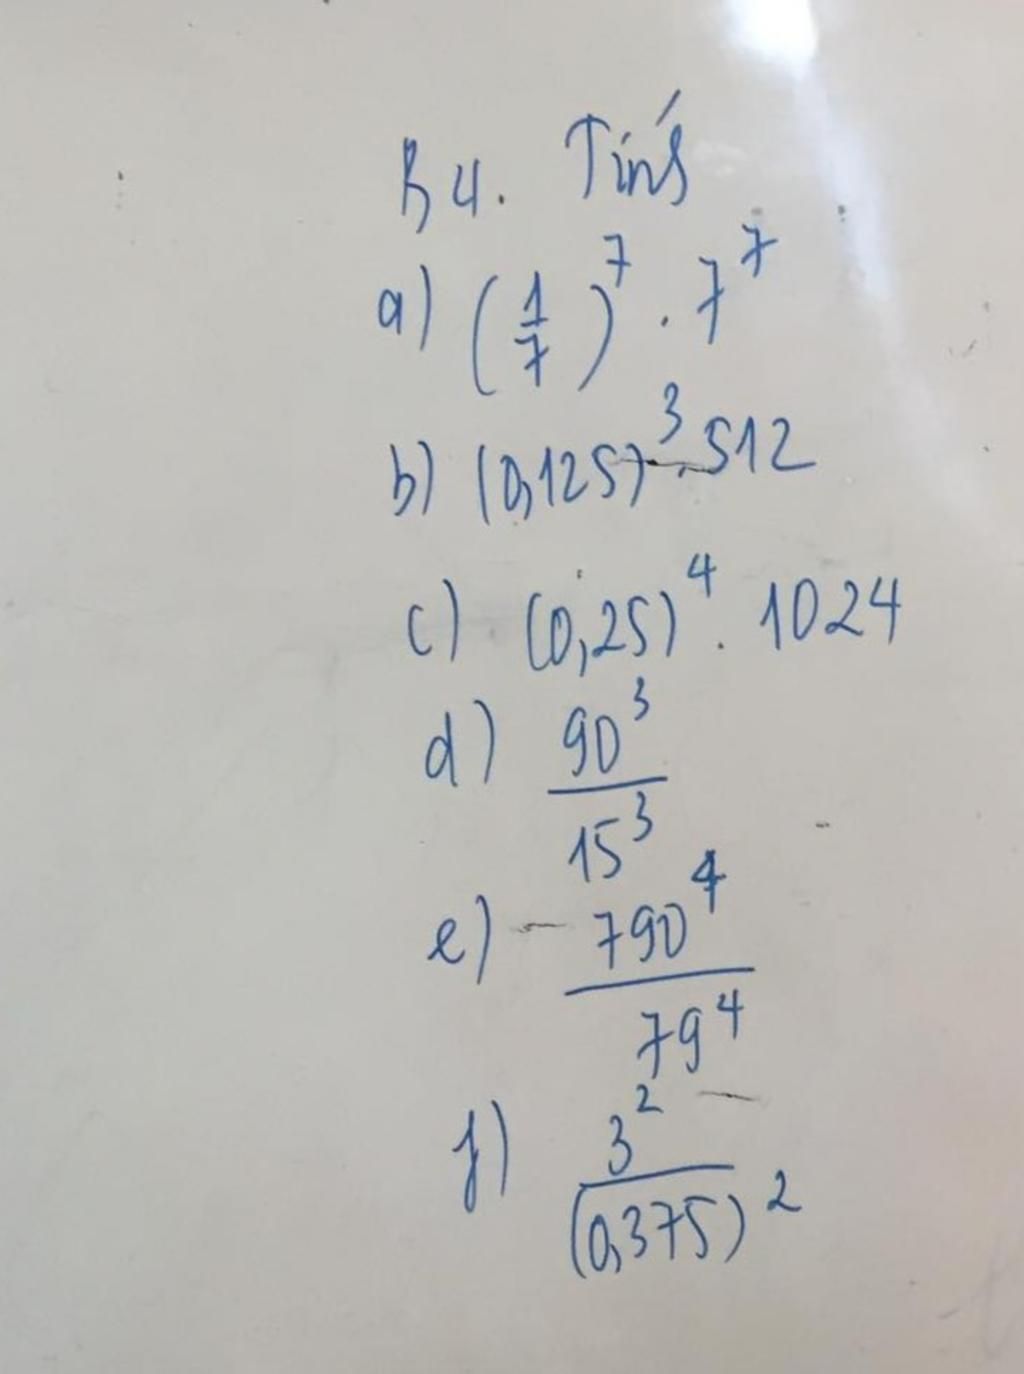 B4. Tính
a) (1/7)^7 . 7^7
b) (0,125)^3 . 512
c) (0,25)^4 . 1024
d) 90^3 / 15^3
e) 790^4 / 79^4
f) 3^2 / (0,375)^2